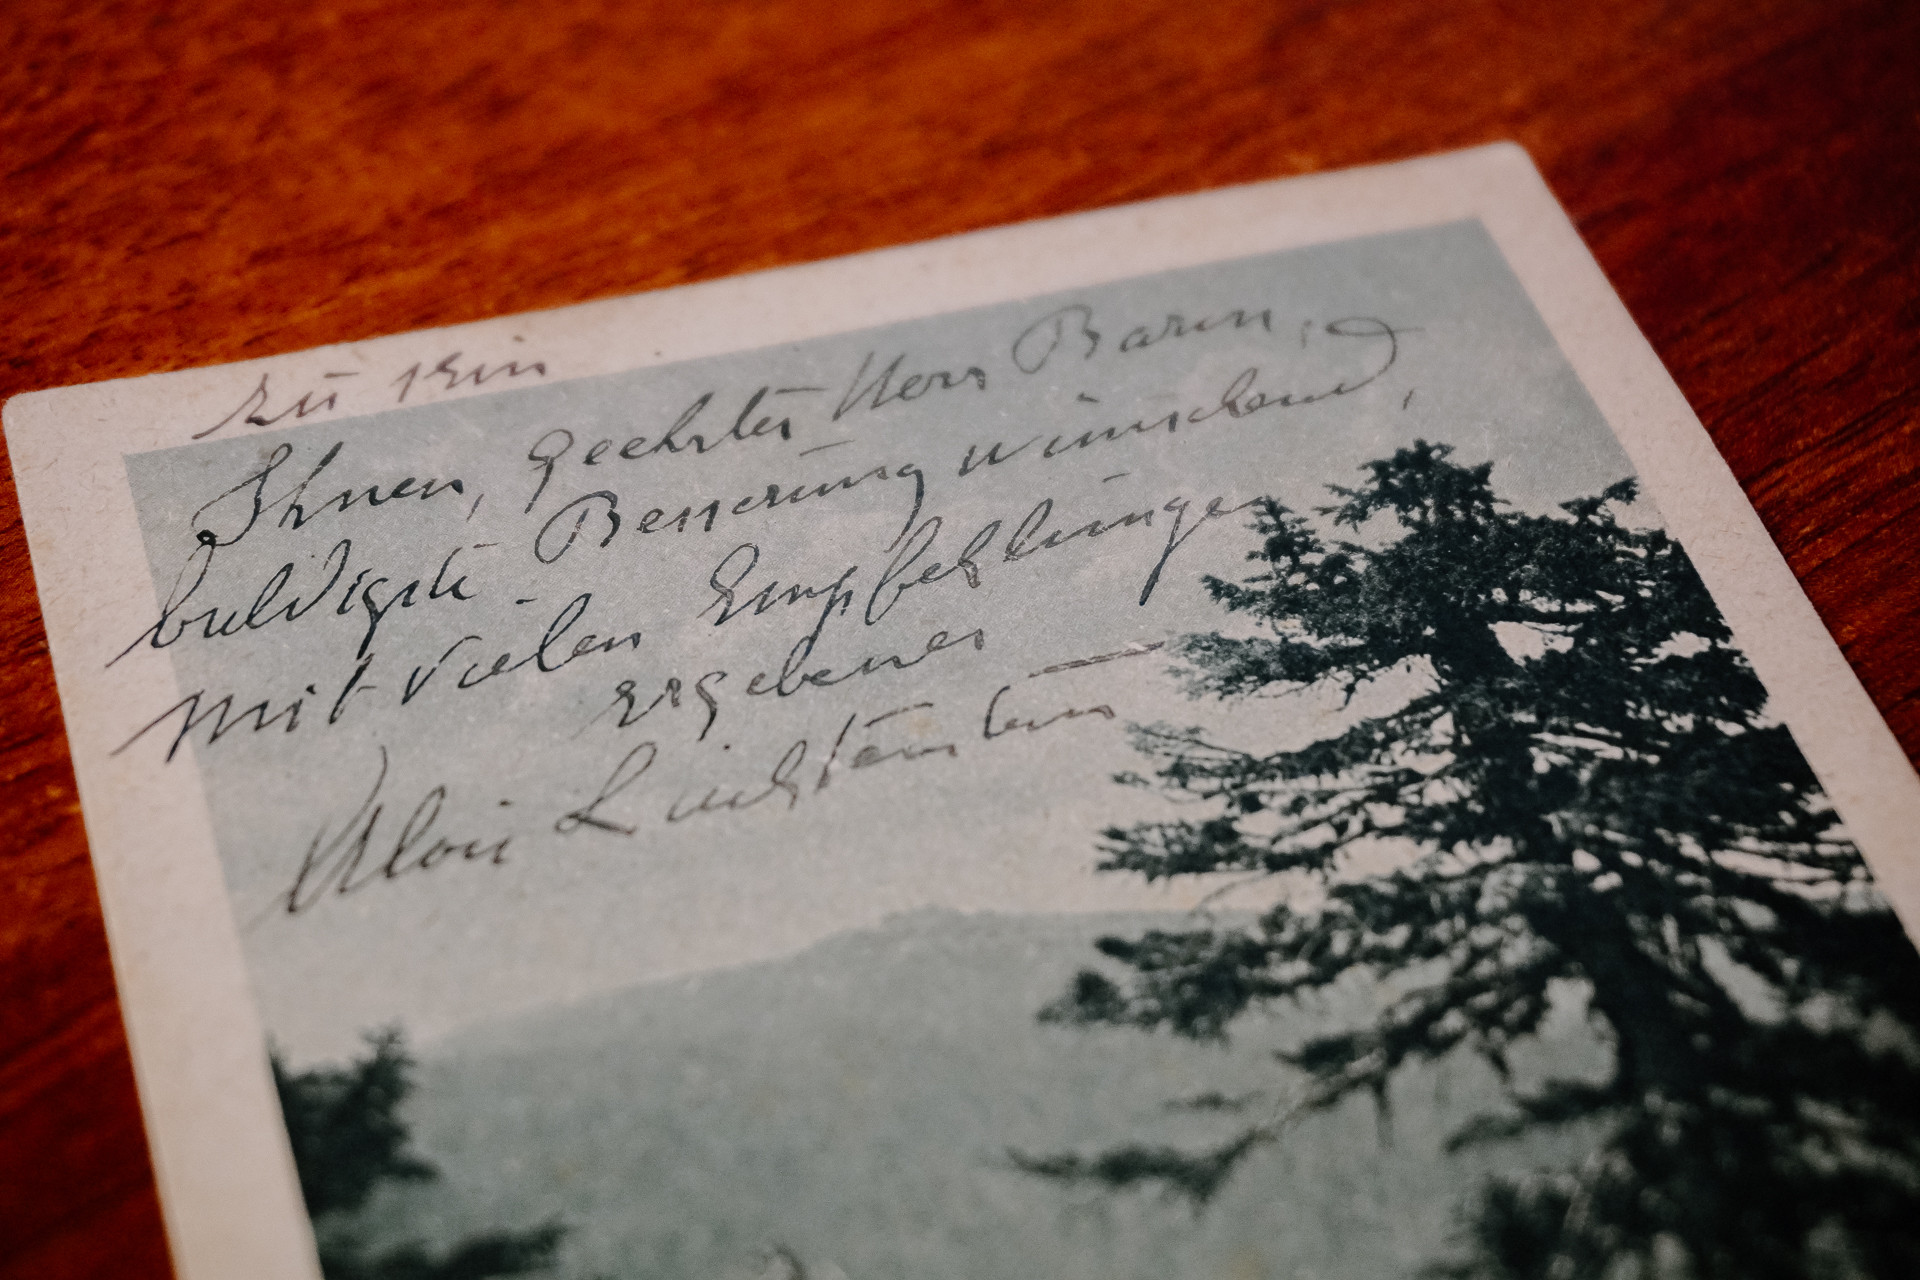 Ihnen, geehrter Herr Baron,
baldigste Besserung wünschend,
mit vielen Empfehlungen
ergebener
Alois Liechtenstein